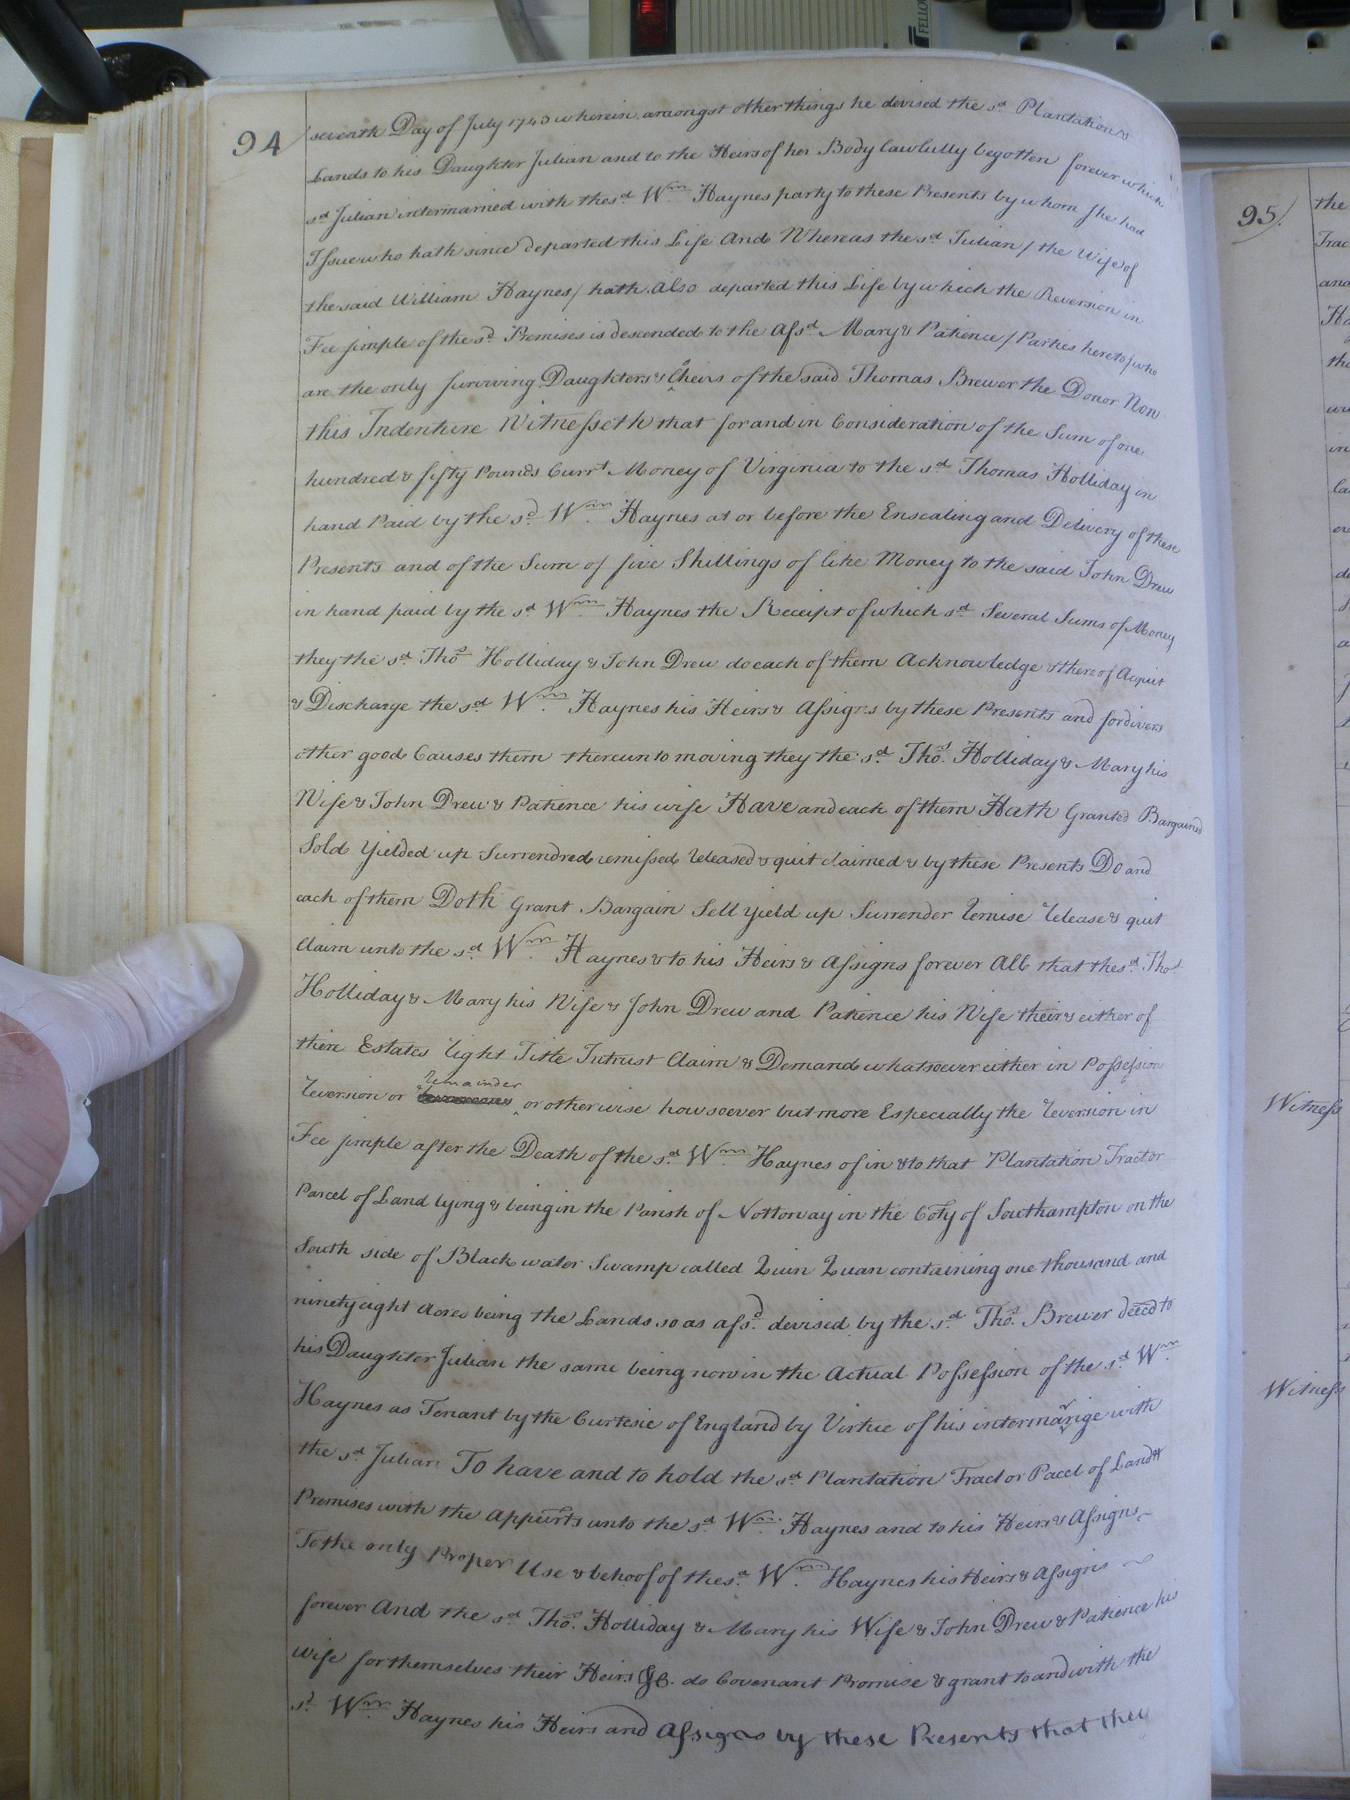 94
seventh Day of July 1743 wherein amongst other things he devised the sd Plantation &
Lands to his Daughter Julian and to the Heirs of her Body lawfully begotten forever which
sd Julian intermarried with the sd Wm Haynes party to these Presents by whom she had
Issue who hath since departed this Life And Whereas the sd Julian / the Wife of
the said William Haynes / hath Also departed this Life by which the Reversion in
Fee simple of the sd Premises is descended to the Afsd Mary & Patience / Parties hereto / who
are the only surviving Daughters & Cheirs of the said Thomas Brewer the Donor Now
this Indenture Witnesseth that for and in Consideration of the Sum of one
hundred & fifty Pounds Currt Money of Virginia to the sd Thomas Holliday in
hand Paid by the sd Wm Haynes at or before the Ensealing and Delivery of these
Presents and of the Sum of five Shillings of like Money to the said John Drew
in hand paid by the sd Wm Haynes the Receipt of which sd Several Sums of Money
they the sd Thos Holliday & John Drew do each of them Acknowledge & thereof Acquit
& Discharge the sd Wm Haynes his Heirs & Assigns by these Presents and for divers
other good Causes them thereunto moving they the sd Thos Holliday & Mary his
Wife & John Drew & Patience his wife Have and each of them Hath Granted Bargained
Sold Yielded up Surrendred remissed Released & quit claimed & by these Presents Do and
each of them Doth Grant Bargain Sell Yield up Surrender Remise Release & quit
Claim unto the sd Wm Haynes & to his Heirs & Assigns forever All that the sd Thos
Holliday & Mary his Wife & John Drew and Patience his Wife their & either of
their Estates Right Title Intrust Claim & Demand whatsoever either in Possession
Reversion or Remainder or otherwise howsoever but more Especially the Reversion in
Fee simple after the Death of the sd Wm Haynes of in & to that Plantation Tract or
Parcel of Land lying & being in the Parish of Nottoway in the Coty of Southampton on the
South side of Black water Swamp called Quin Quan containing one thousand and
ninety eight Acres being the Lands so as afsd devised by the sd Thos Brewer deced to
his Daughter Julian the same being now in the Actual Possession of the sd Wm
Haynes as Tenant by the Curtesie of England by Virtue of his intermarrige with
the sd Julian To have and to hold the sd Plantation Tract or Pacel of Land &
Premises with the Appurts unto the sd Wm Haynes and to his Heirs & Assigns
To the only Proper Use & behoof of the sd Wm Haynes his Heirs & Assigns
forever And the sd Thos Holliday & Mary his Wife & John Drew & Patience his
wife for themselves their Heirs &c. do Covenant Promise & grant to and with the
sd Wm Haynes his Heirs and Assigns by these Presents that they
95
the
Trac
and
Witness
Witness